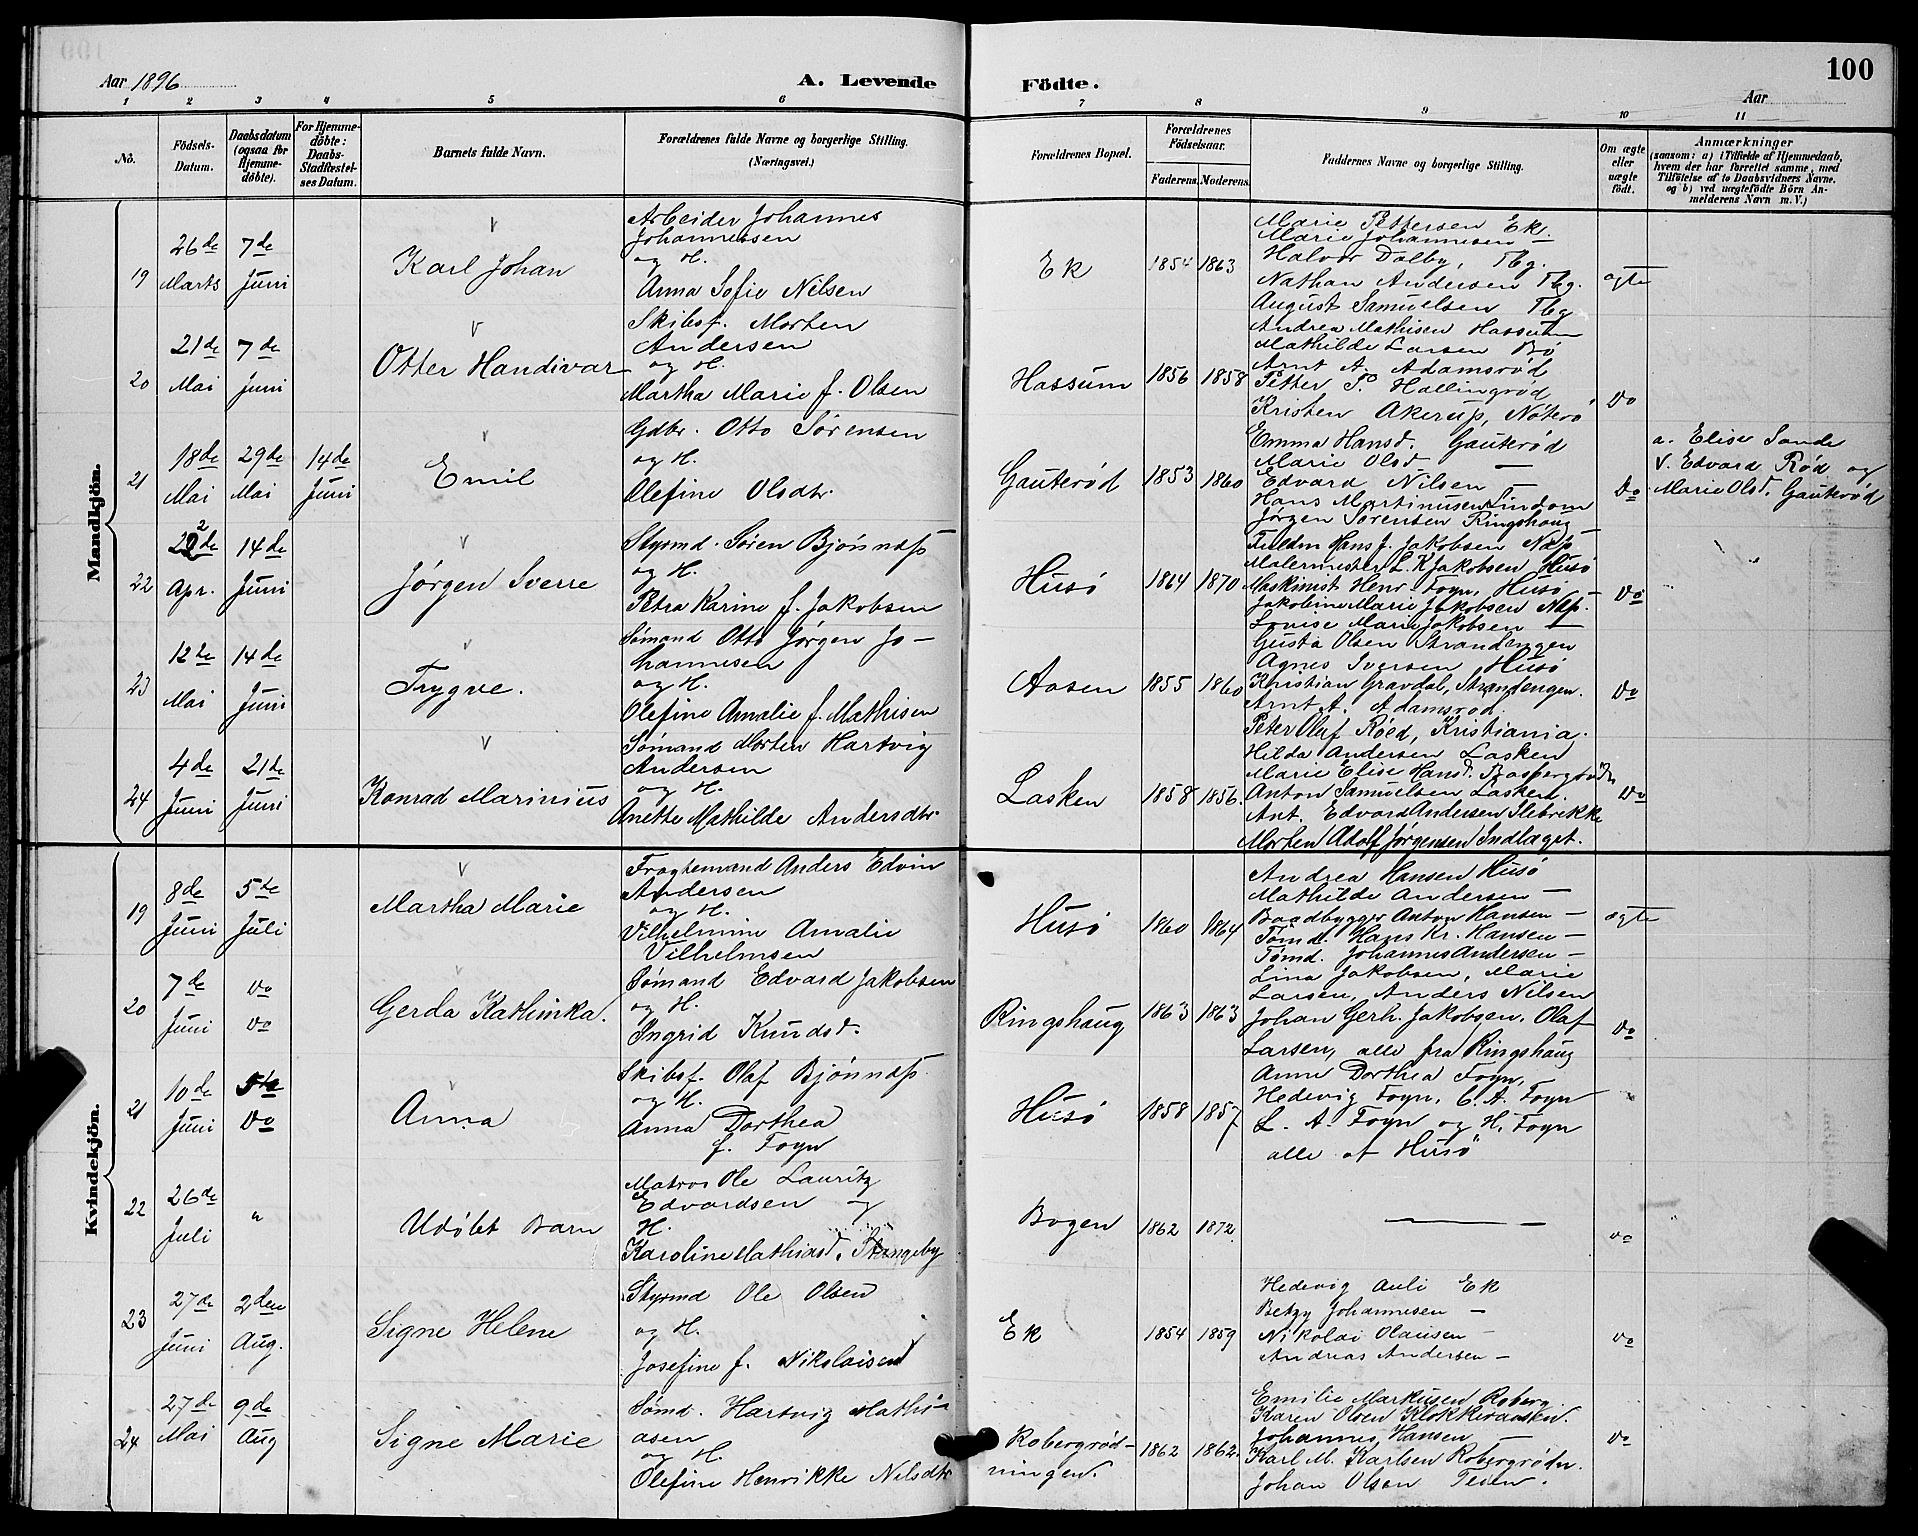 100
Aar 1896
A. Levende
Födte.
Aar
1 2 3 4 5 6 7 8 9 10 11
No.
Födsels-
Datum.
Daabsdatum
(ogsaa for
Hjemme-
döbte).
For Hjemme-
döbte:
Daabs-
Stadfæstel-
ses Datum.
Barnets fulde Navn.
Forældrenes fulde Navne og borgerlige Stilling.
(Næringsvei.)
Forældrenes Bopæl.
Forældrenes
Födselsaar.
Faderens. Moderens.
Faddernes Navne og borgerlige Stilling.
Om ægte
eller
uægte
födt.
Anmærkninger
(saasom: a) i Tilfælde af Hjemmedaab,
hvem der har forrettet samme, med
Tilföielse af to Daabsvidners Navne.
og b) ved uægtefödte Börn An-
melderens Navn m. V.)
Mandkjön.
19
26de
Marts
7de
Juni
Karl Johan
Arbeider Johannes
Johannessen
og H.
Anna Sofie Nilsen
Ek
1854 1863
Marie Pettersen Ek.
Marie Johannesen —
Halvor Dalby, Tbg.
Nathan Andersen Tbg.
August Samuelsen Tbg
ægte
20
21de
Mai
7de
Juni
Otter Handivar
Skibsf. Morten
Andersen
og H.
Martha Marie f. Olsen
Hassum
1856 1858
Andrea Mathisen Hassum
Mathilde Larsen Bö
Arnt A. Adamsrød
Petter P. Hallingrød
Kristen Akerup, Nøterö
Do
21
18de
Mai
29de
Mai
14de
Juni
Emil
Gdbr. Otto Sørensen
og H.
Olefine Olsdtr.
Gauterød
1853 1860
Emma Hansd. Gauterød
Marie Olsd —
Edvard Nilsen —
Hans Martinusen Lindom
Jørgen Sørensen Ringshaug
Do
a. Elise Sande
V. Edvard Rød og
Marie Olsd. Gauterød
22
22de
Apr.
14de
Juni
Jørgen Sverre
Styrmd. Søren Bjønnæss
og H.
Petra Karine f. Jakobsen
Husö
1864 1870
Hans J. Jakobsen Næss
Malermester L. K. Jakobsen Husö
Maskinist Henr. Foyn, Husö
Jakobine Marie Jakobsen Næss.
Lovise Marie Jakobsen —
Do
23
12te
Mai
14de
Juni
Trygve.
Sömand Otto Jørgen Jo-
hannesen
og H.
Olefine Amalie f. Mathisen
Aasen
1855 1860
Gusta Olsen Strandengen
Agnes Iversen Husö
Kristian Gravdal, Strandengen.
Arnt A. Adamsrød.
Peter Oluf Røed, Kristiania.
Do
24
4de
Juni
21de
Juni
Konrad Marinius
Sömand Morten Hartvig
Andersen
og H.
Anette Mathilde Andersdtr.
Lasken
1858 1856.
Hilda Andersen Lasken
Marie Elise Hansd.
Anton Samuelsen Lasken.
Ant. Edvard Andersen Ilebrekke
Morten Adolf Jørgensen Indlaget.
Do
Kvindekjön.
19
8de
Juni
5te
Juli
Martha Marie
Fragtemand Anders Edvin
Andersen
og H.
Vilhelmine Amalie
Vilhelmsen
Husö
1860 1864
Andrea Hansen Husö
Mathilde Andersen —
Baadbygger Anton Hansen —
Tömd. Hans Kr. Hansen —
Tömd. Johannes Andersen —
ægte
20
7de
Juni
Do
Do
Gerda Kathinka.
Sömand Edvard Jakobsen
og H.
Ingrid Knudsd.
Ringshaug
1863 1863
Lina Jakobsen, Marie
Larsen, Anders Nilsen
Johan Gerh. Jakobsen, Olaf
Larsen, alle fra Ringshaug
Do
21
10de
Juni
5te
Do
Anna
Skibsf. Olaf Bjønnæss.
og H.
Anna Dorthea
f. Foyn
Husö
1858 1857
Anne Dorthea Foyn,
Hedevig Foyn, C. A. Foyn
L. A. Foyn og H. Foyn
alle af Husö
22
26de
Juli
"
Udøbt Barn
Matros Ole Lauritz
Edvardsen og
H.
Karoline Mathiasd. Strengsby
Bogen
1862 1872
— —
Do
23
27de
Juni
2den
Aug.
Signe Helene
Styrmd Ole Olsen
og H.
Josefine f. Nikolaisen
Ek
1854 1859
Hedevig Auli Ek
Betzy Johannesen —
Nikolai Olausen —
Andreas Andersen —
Do
24
27de
Mai
9de
Aug
Signe Marie
Sømd. Hartvig Mathi-
asen
og H.
Olefine Henrikke Nilsdtr
Robergrød-
ningen.
1862 1862.
Emilie Markusen Roberg
Karen Olsen
Johannes Hansen —
Karl M. Karlsen Robergrødn.
Johan Olsen Teien.
Do